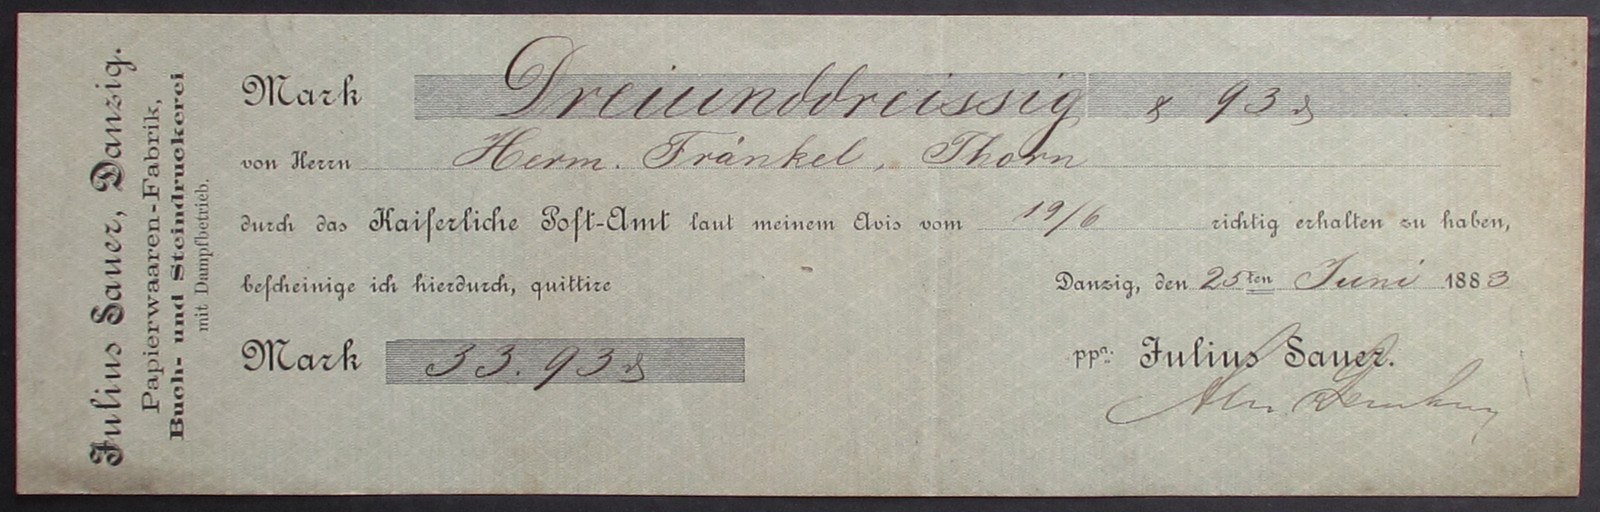 Julius Sauer, Danzig.
Papierwaaren-Fabrik,
Buch- und Steindruckerei
mit Dampfbetrieb.
Mark Dreiunddreissig & 93 ₰
von Herrn Herm. Fränkel, Thorn
durch das Kaiserliche Post-Amt laut meinem Avis vom 19/6 richtig erhalten zu haben,
bescheinige ich hierdurch, quittire Danzig, den 25ten Juni 1883
Mark 33.93 ₰ ppa. Julius Sauer.